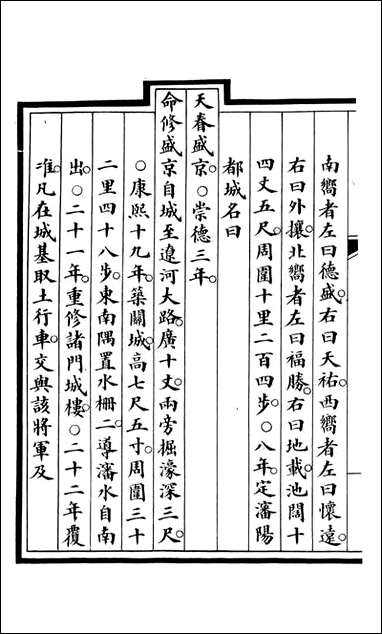 南嚮者左曰德盛。右曰天祐。西嚮者左曰懷遠。
右曰外攘。北嚮者左曰福勝。右曰地載。池闊十
四丈五尺。周圍十里二百四步。○八年。定瀋陽
都城名曰
天眷盛京。○崇德三年。
命修盛京自城至遼河大路。廣十丈。兩旁掘濠深三尺。
○康熙十九年。築關城。高七尺五寸。周圍三十
二里四十八步。東南隅置水柵二。導瀋水自南
出。○二十一年。重修諸門城樓。○二十二年覆
准。凡在城基取土行車。交與該將軍及